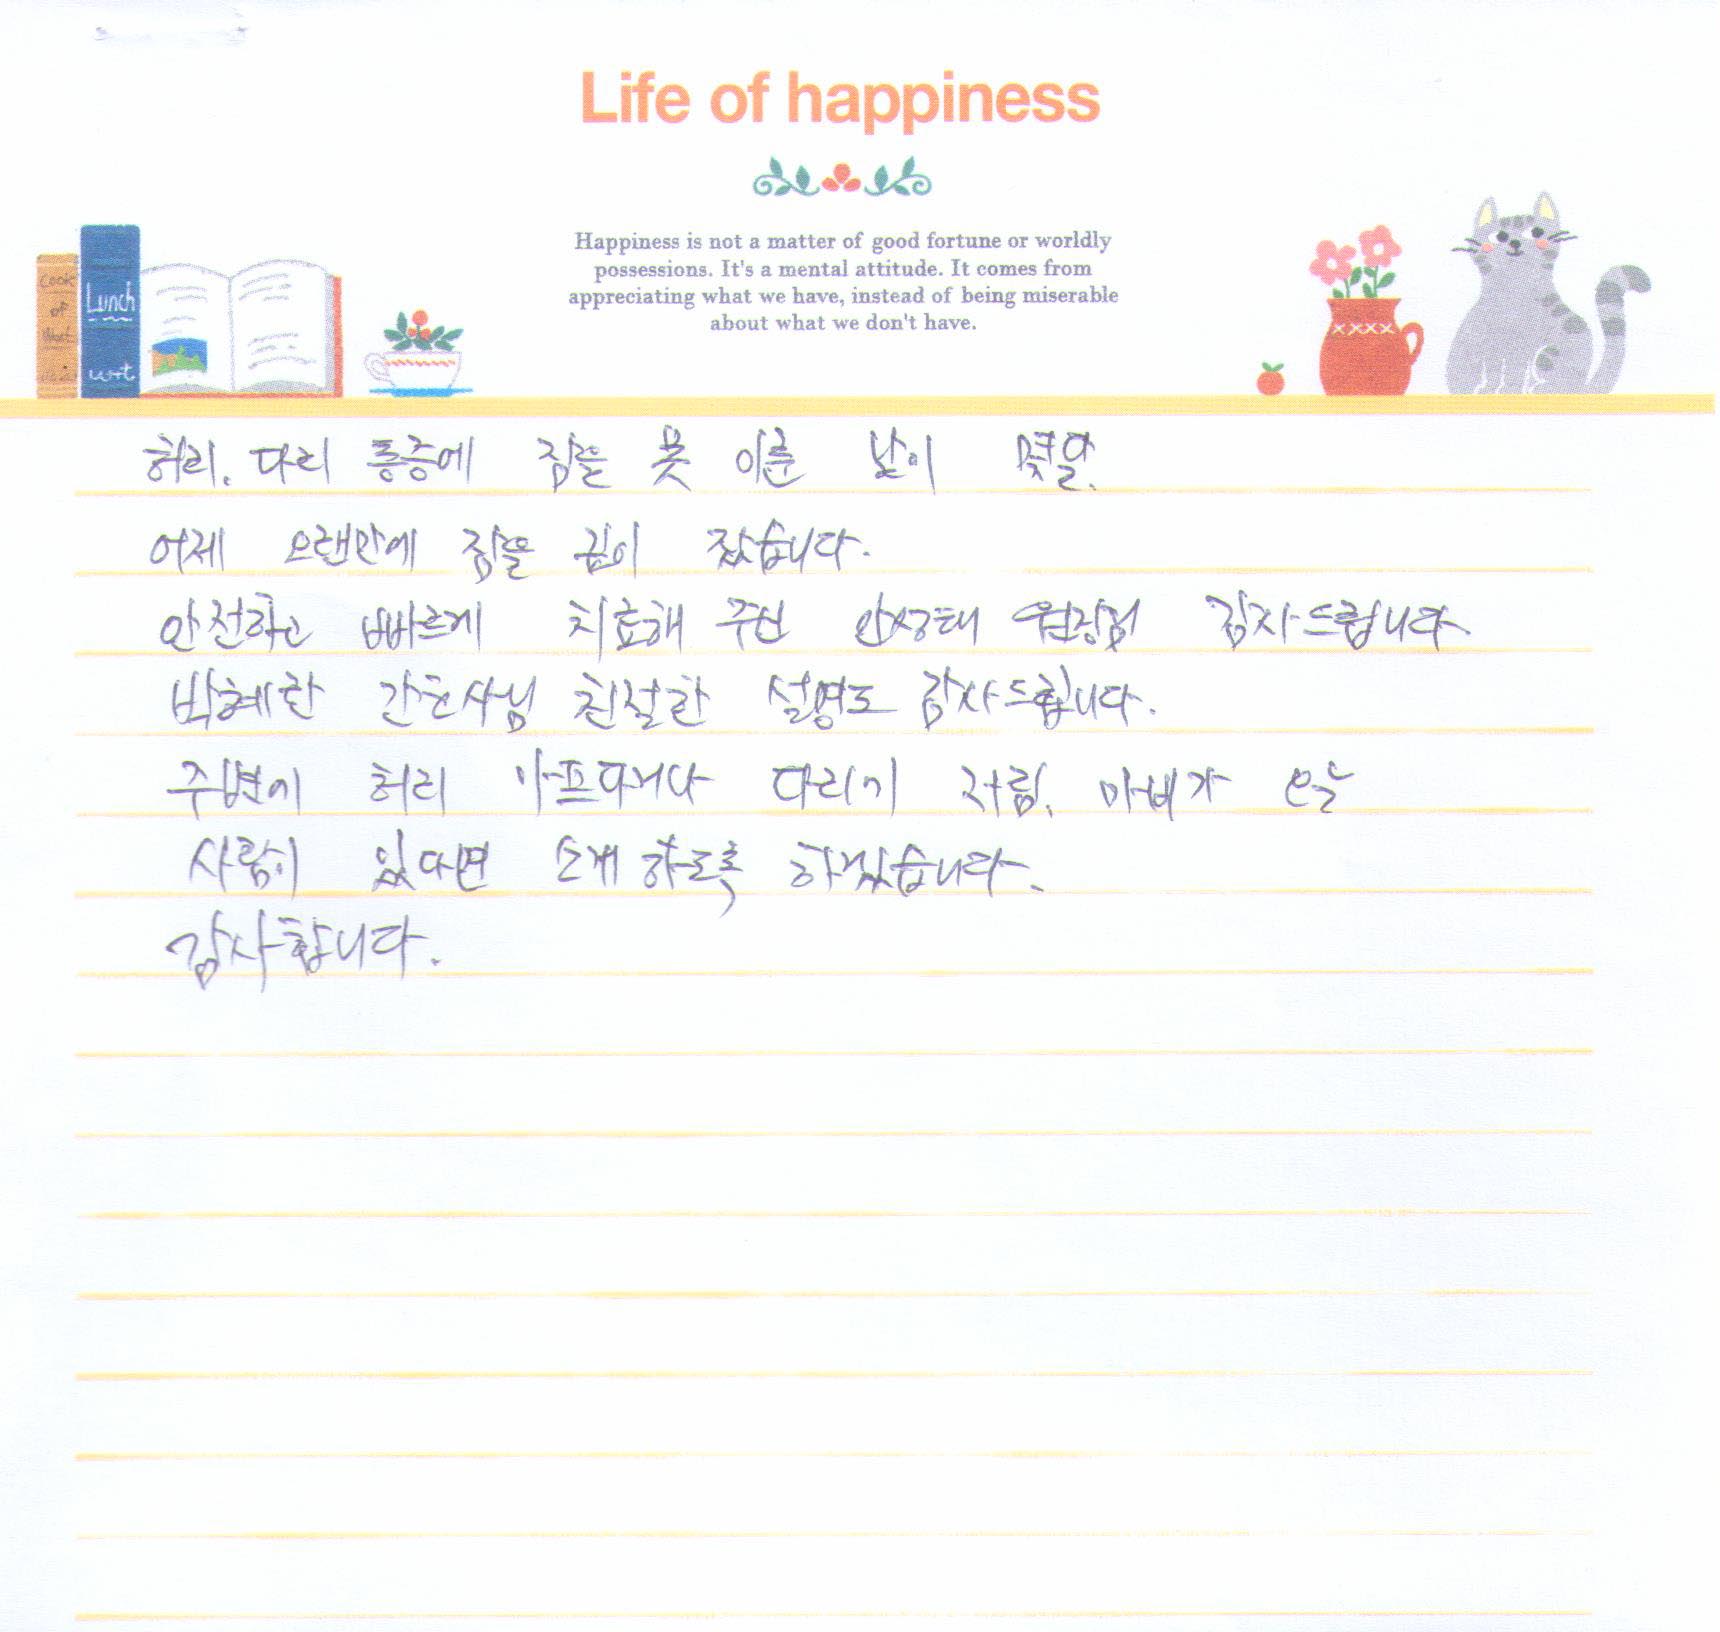 Life of happiness
Happiness is not a matter of good fortune or worldly
possessions. It's a mental attitude. It comes from
appreciating what we have, instead of being miserable
about what we don't have.
Cook
of
Lunch
허리. 다리 통증에 잠을 못 이룬 날이 몇달.
어제 오랜만에 잠을 깊이 잤습니다.
안전하고 빠르게 치료해 주신 안성태 원장님 감사드립니다.
박혜란 간호사님 친절한 설명도 감사드립니다.
주변에 허리 아프다거나 다리가 저림. 마비가 오는
사람이 있다면 소개하도록 하겠습니다.
감사합니다.